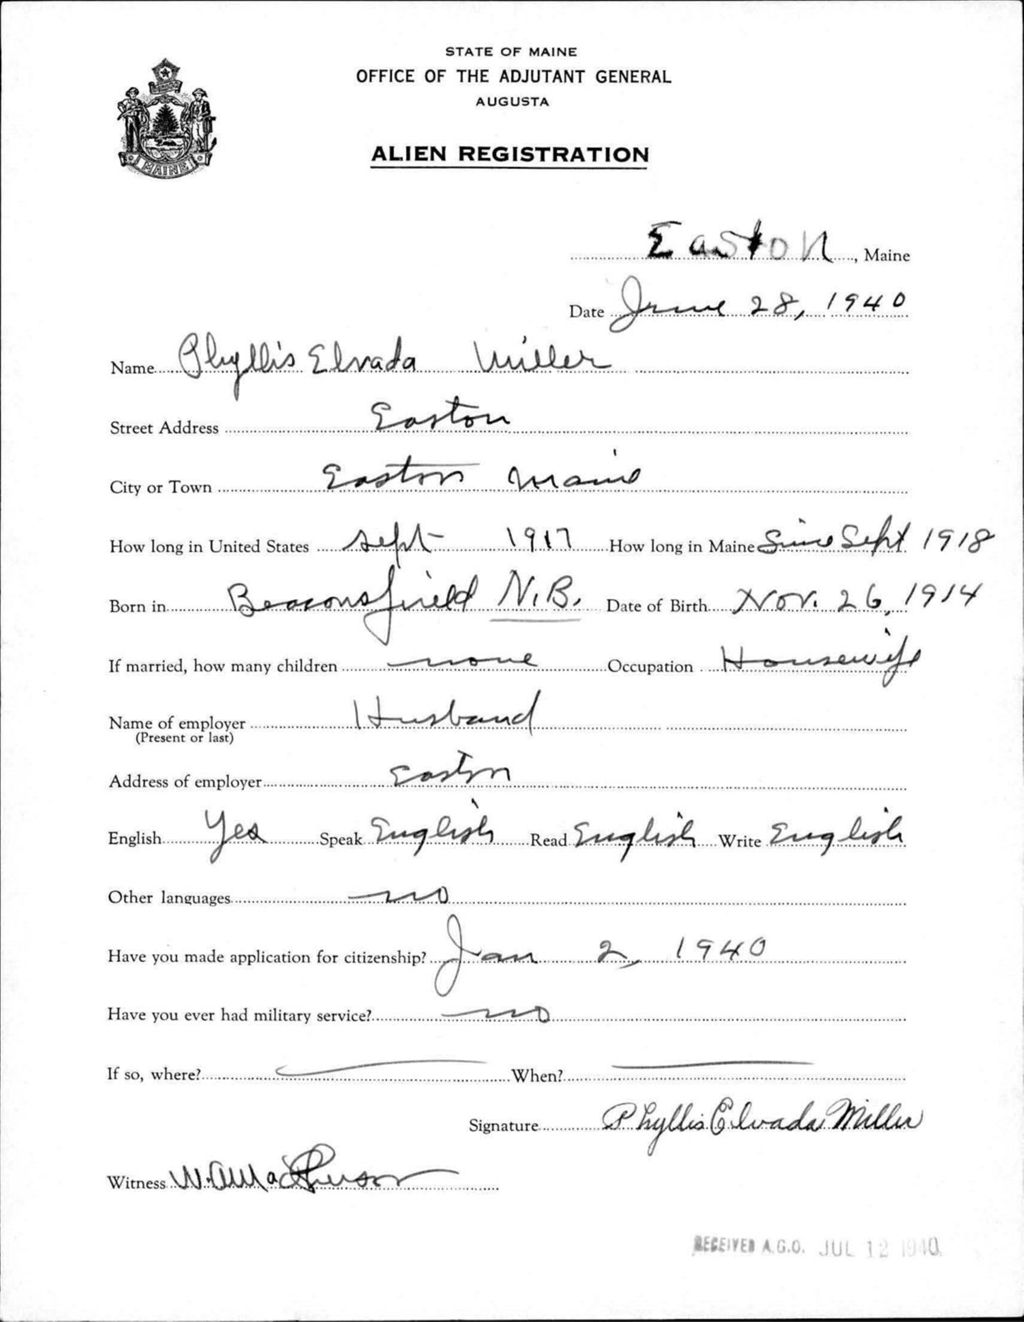 STATE OF MAINE
OFFICE OF THE ADJUTANT GENERAL
AUGUSTA
ALIEN REGISTRATION
MAINE
Easton, Maine
Date June 28, 1940
Name Phyllis Elvada Miller
Street Address Easton
City or Town Easton Maine
How long in United States Sept 1917 How long in Maine Since Sept 1918
Born in Beaconsfield N.B. Date of Birth Nov. 26, 1914
If married, how many children none Occupation Housewife
Name of employer Husband
(Present or last)
Address of employer Easton
English Yes Speak English Read English Write English
Other languages no
Have you made application for citizenship? Jan 2, 1940
Have you ever had military service? no
If so, where? When?
Signature Phyllis Elvada Miller
Witness W.A. MacPherson
RECEIVED A.G.O. JUL 12 1940